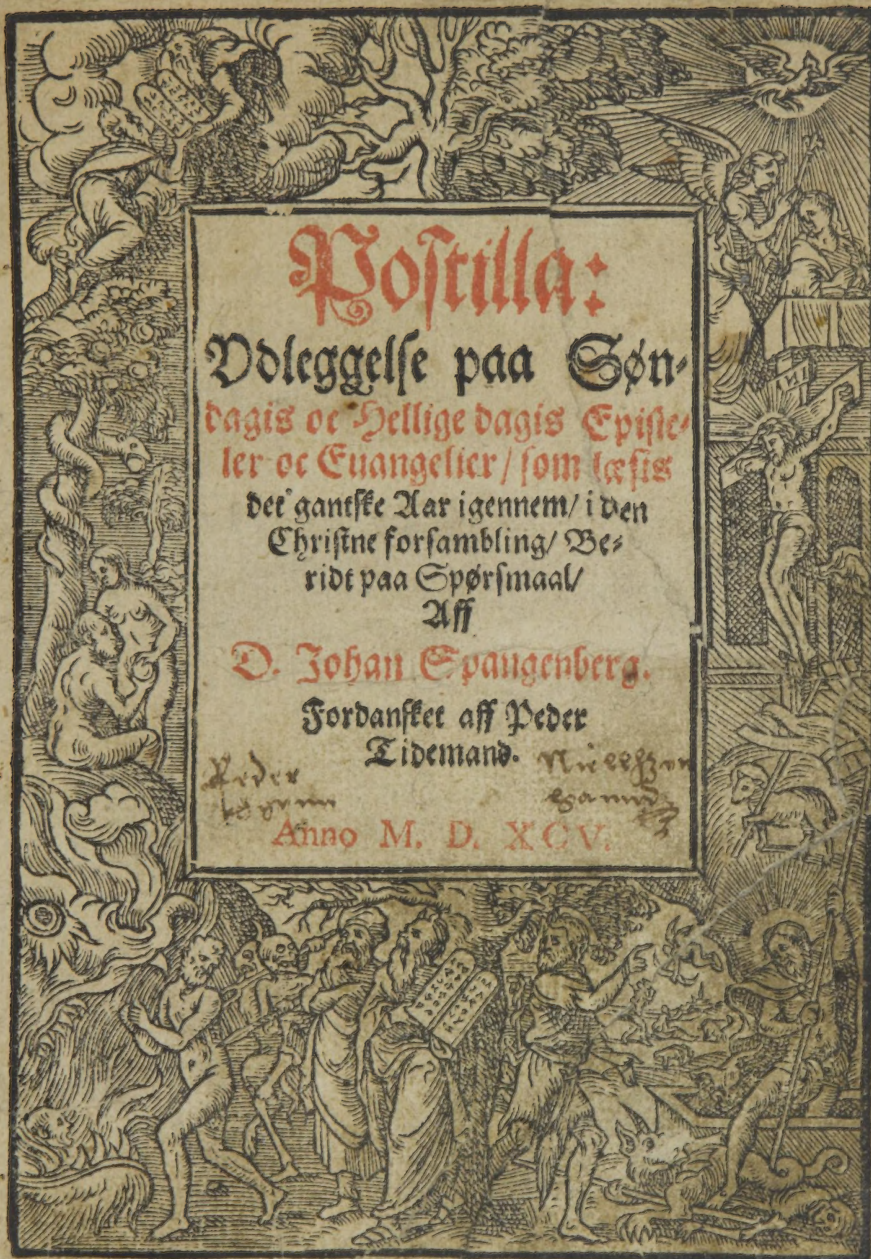 INRI
Postilla:
Vdleggelse paa Søn-
dagis oc Hellige dagis Episte-
ler oc Euangelier/ som læsis
det gantske Aar igennem/ i den
Christne forsambling/ Be-
ridt paa Spørsmaal/
Aff
D. Johan Spangenberg.
Fordansket aff Peder
Tidemand.
Peder
Anno M. D. XCV.